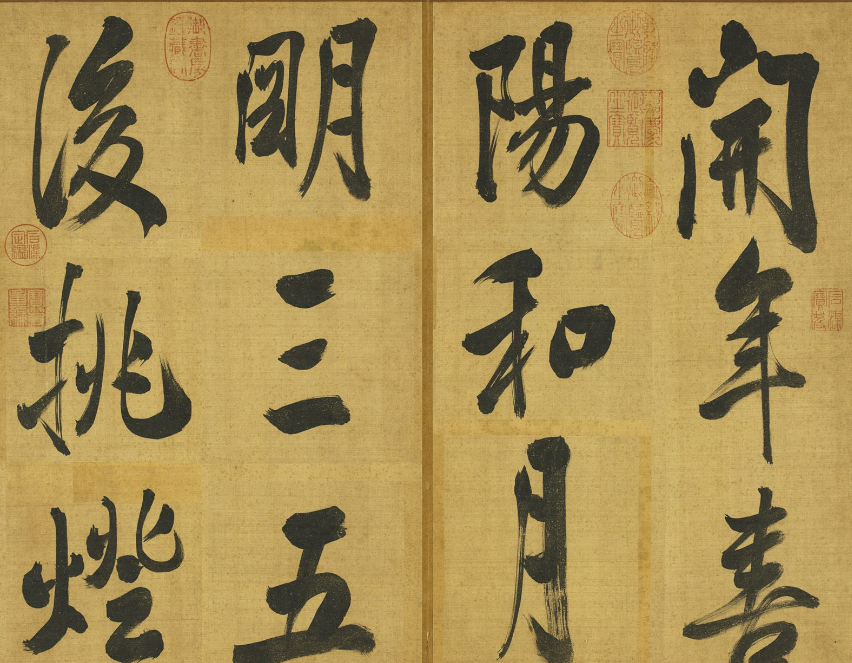 開年喜
陽和月
明三五
後挑燈